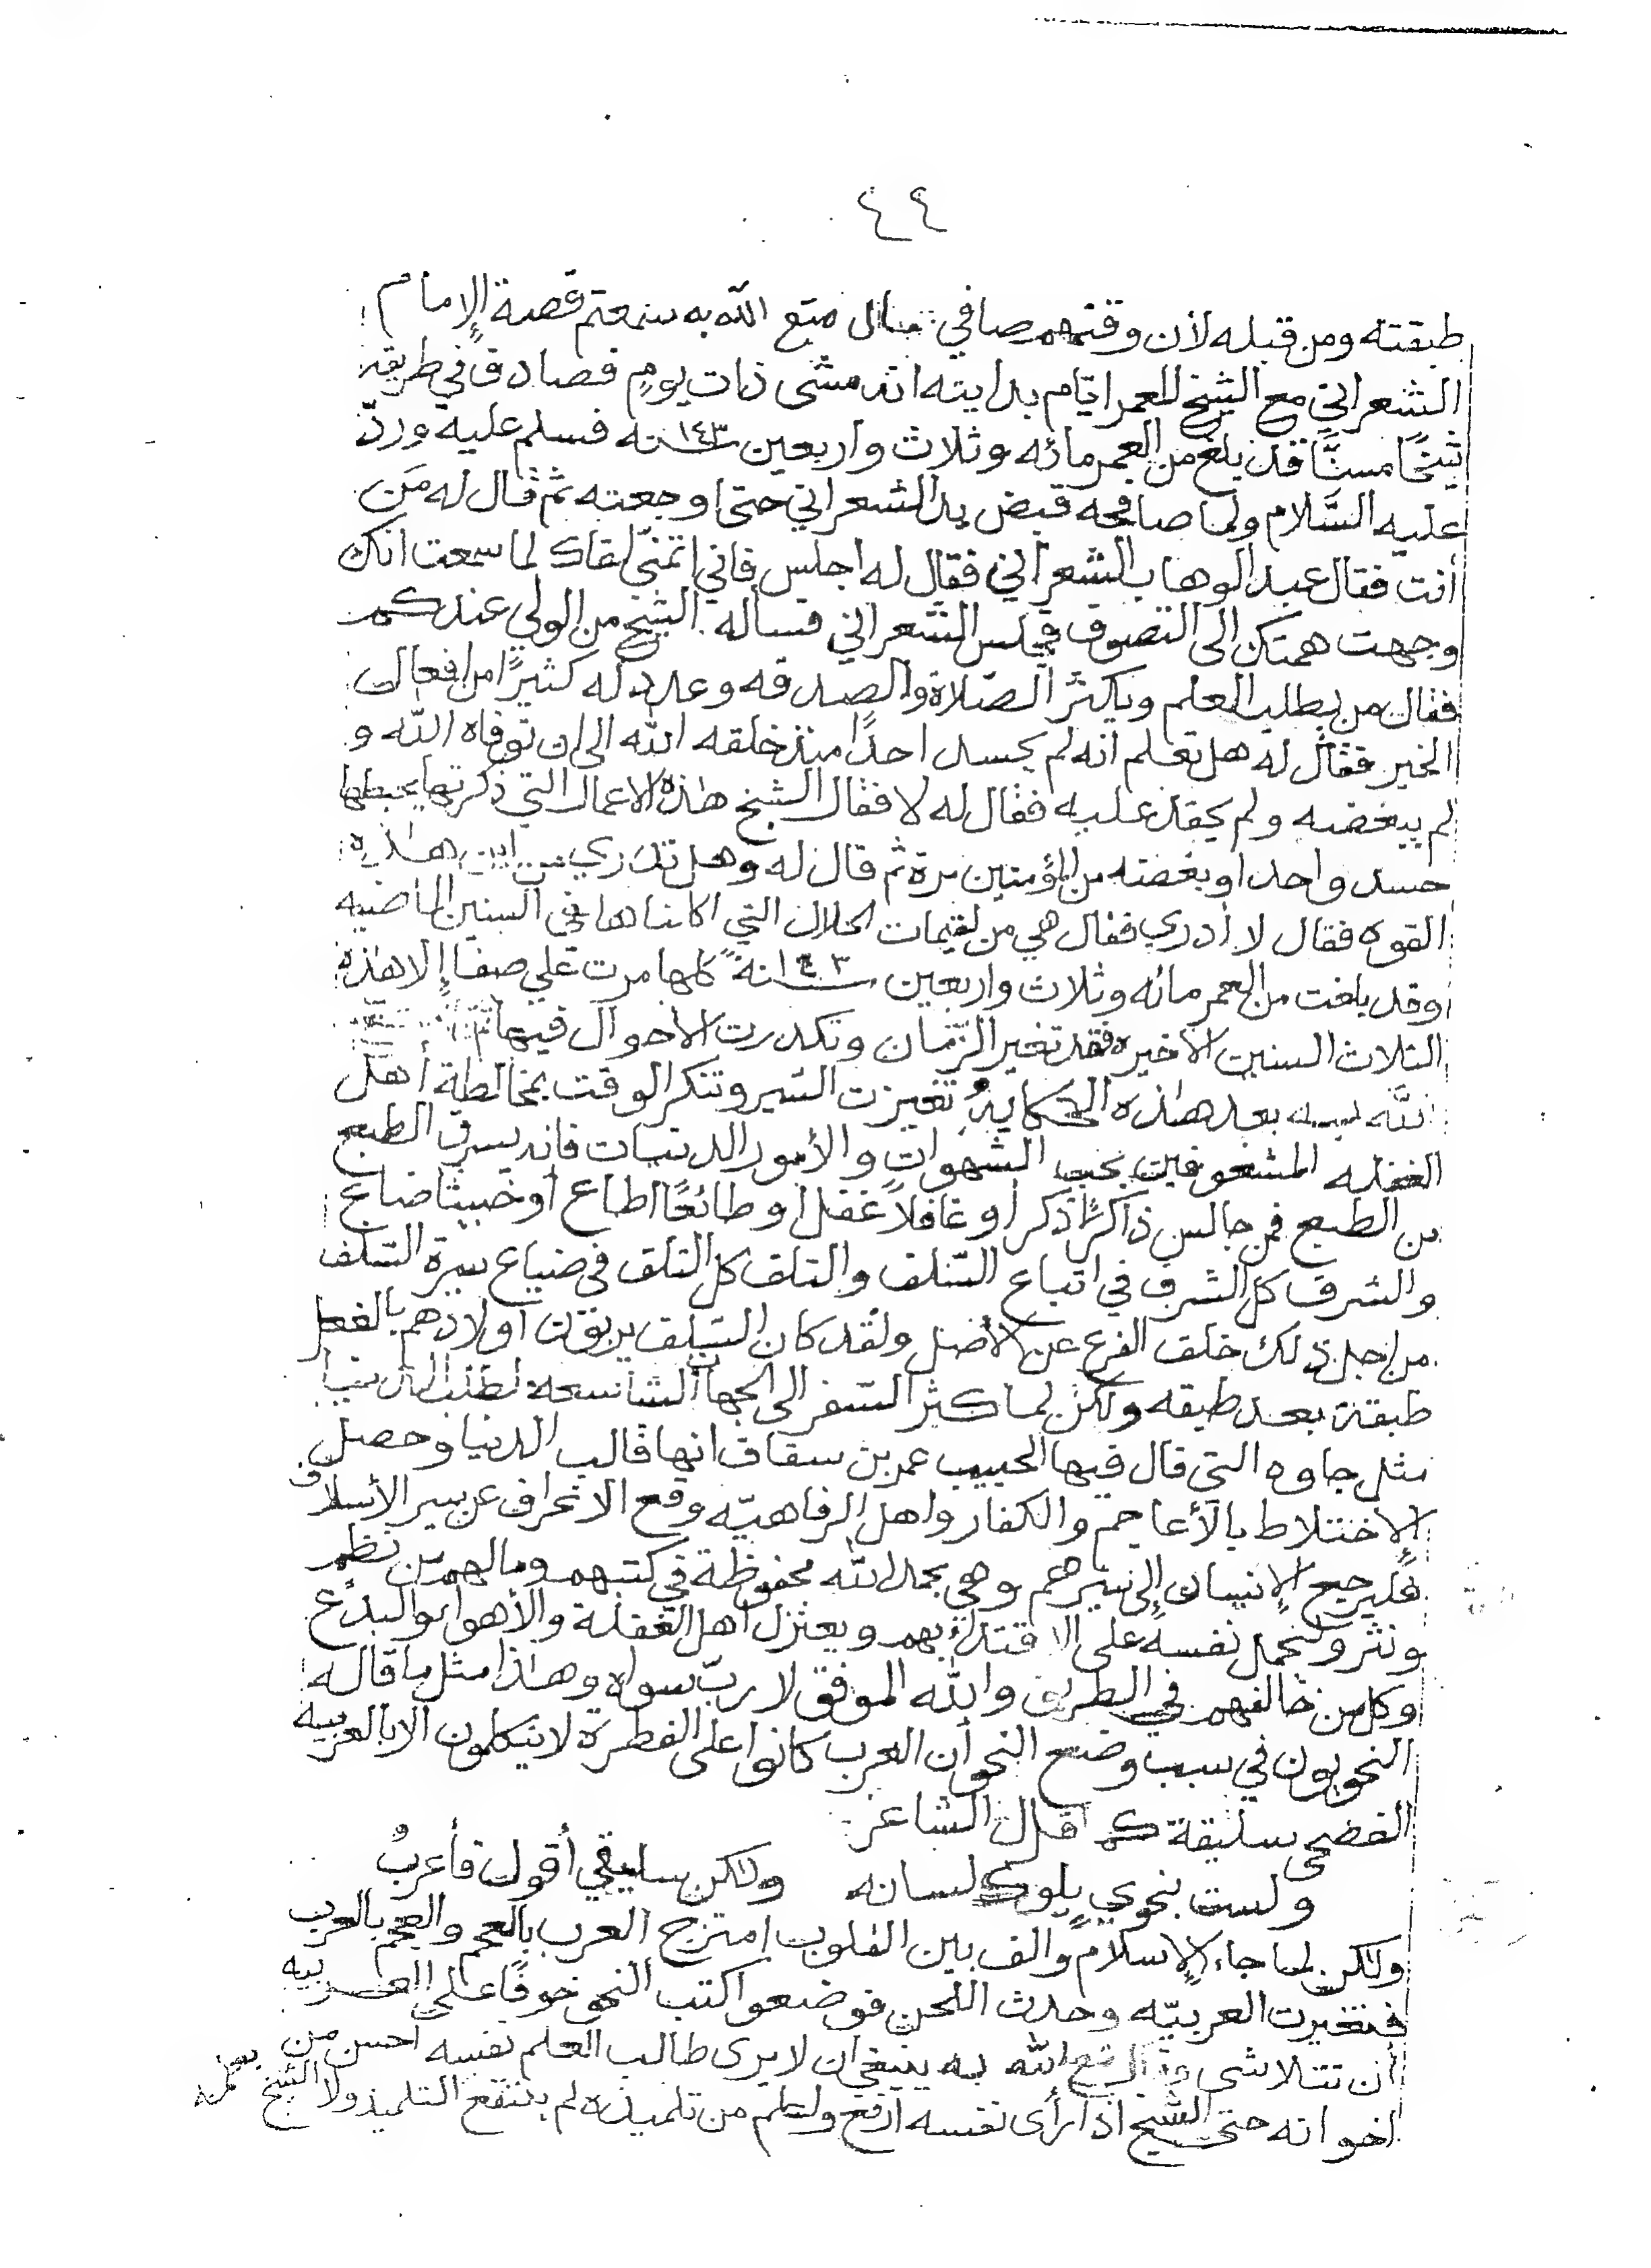 ٤٤
طبقته ومن قبله لأن وقتهم صافي قال متع الله به سمعتم قصة الإمام
الشعراني مع الشيخ المعمر ايّام بدايته انه مشى ذات يومٍ فصادق في طريقه
شيخًا مسنًّا قد بلغ من العمر مائه وثلاث واربعين ١٤٣ سنة فسلم عليه وردّ
عليه السَّلام ولما صافحه قبض يد الشعراني حتى اوجعته ثم قال له مَن
أنت فقال عبد الوهاب الشعراني فقال له اجلس فاني اتمنّى لقاك لما سمعت انك
وجهت همتك الى التصوف فجلس الشعراني فسأله الشيخ من الولي عندكم
فقال من يطلب العلم ويكثر الصّلاة والصدقه وعدد له كثيرًا من افعال
الخير فقال له هل تعلم انه لم يحسد احدًا منذ خلقه الله الى ان توفاه الله و
لم يبغضه ولم يحقد عليه فقال له لا فقال الشيخ هذه الاعمال التي ذكرتها يحبطها
حسد واحد او بغضته من المؤمنين مرة ثم قال له وهل تدري من اين هذه
القوه فقال لا أدري فقال هي من لقيمات الحلال التي اكلناها في السنين الماضيه
وقد بلغت من العمر مائه وثلاث واربعين ١٤٣ سنةً كلها مرت علي صفا إلا هذه
الثلاث السنين الاخيره فقد تغير الزّمان وتكدرت الأحوال فيها
الله به بعد هذه الحكايةُ تغيرت السّير وتنكر الوقت بمخالطة أهل
الغفله المشغوفين بحب الشهوات والأمور الدنيات فانه يسرق الطبع
من الطبع فمن جالس ذاكرًا ذكر أو غافلاً غفل او طائعًا اطاع أو خبيثًا ضاع
والشرف كل الشرف في اتباع السّلف والتلف كل التلف في ضياع سيرة السّلف
من اجل ذلك خلف الفرع عن الأصل ولقد كان السّلف يربّون أولادهم بالفعل
طبقة بعد طبقه ولكن لما كثر السّفر الى الجهات الشاسعة لطلب الدنيا
مثل جاوه التى قال فيها الحبيب عمر بن سقاف انها قالب الدنيا وحصل
الإختلاط بالأعاجم والكفار واهل الرفاهيّه وقع الانحراف عن سير الأسلاف
فليرجع الإنسان إلى سيرهم وهي بحمد الله محفوظة في كتبهم ومالهم من نظم
ونثر وليحمل نفسه على الاقتداء بهم ويعتزل أهل الغفلة والأهواء والبدع
وكل من خالفهم في الطريق والله الموفق لا ربّ سواه وهذا مثل ما قاله
النحويون في سبب وضع النحو أن العرب كانوا على الفطرة لا يتكلمون الا بالعربيه
الفصحى سليقة كما قال الشاعر:
ولست بنحويٍ يلوك لسانه ولكن سليقي أقول فأعربُ
ولكن لما جاء الإسلام والف بين القلوب امتزج العرب بالعجم والعجم بالعرب
فتغيرت العربيّه وحدث اللحن فوضعوا كتب النحو خوفًا على العربيه
أن تتلاشى وقال متع الله به ينبغي ان لا يرى طالب العلم نفسه احسن من
اخوانه حتى الشيخ اذا رأى نفسه ارفع واعلم من تلميذه لم ينتفع التلميذ ولا الشيخ بعلمه